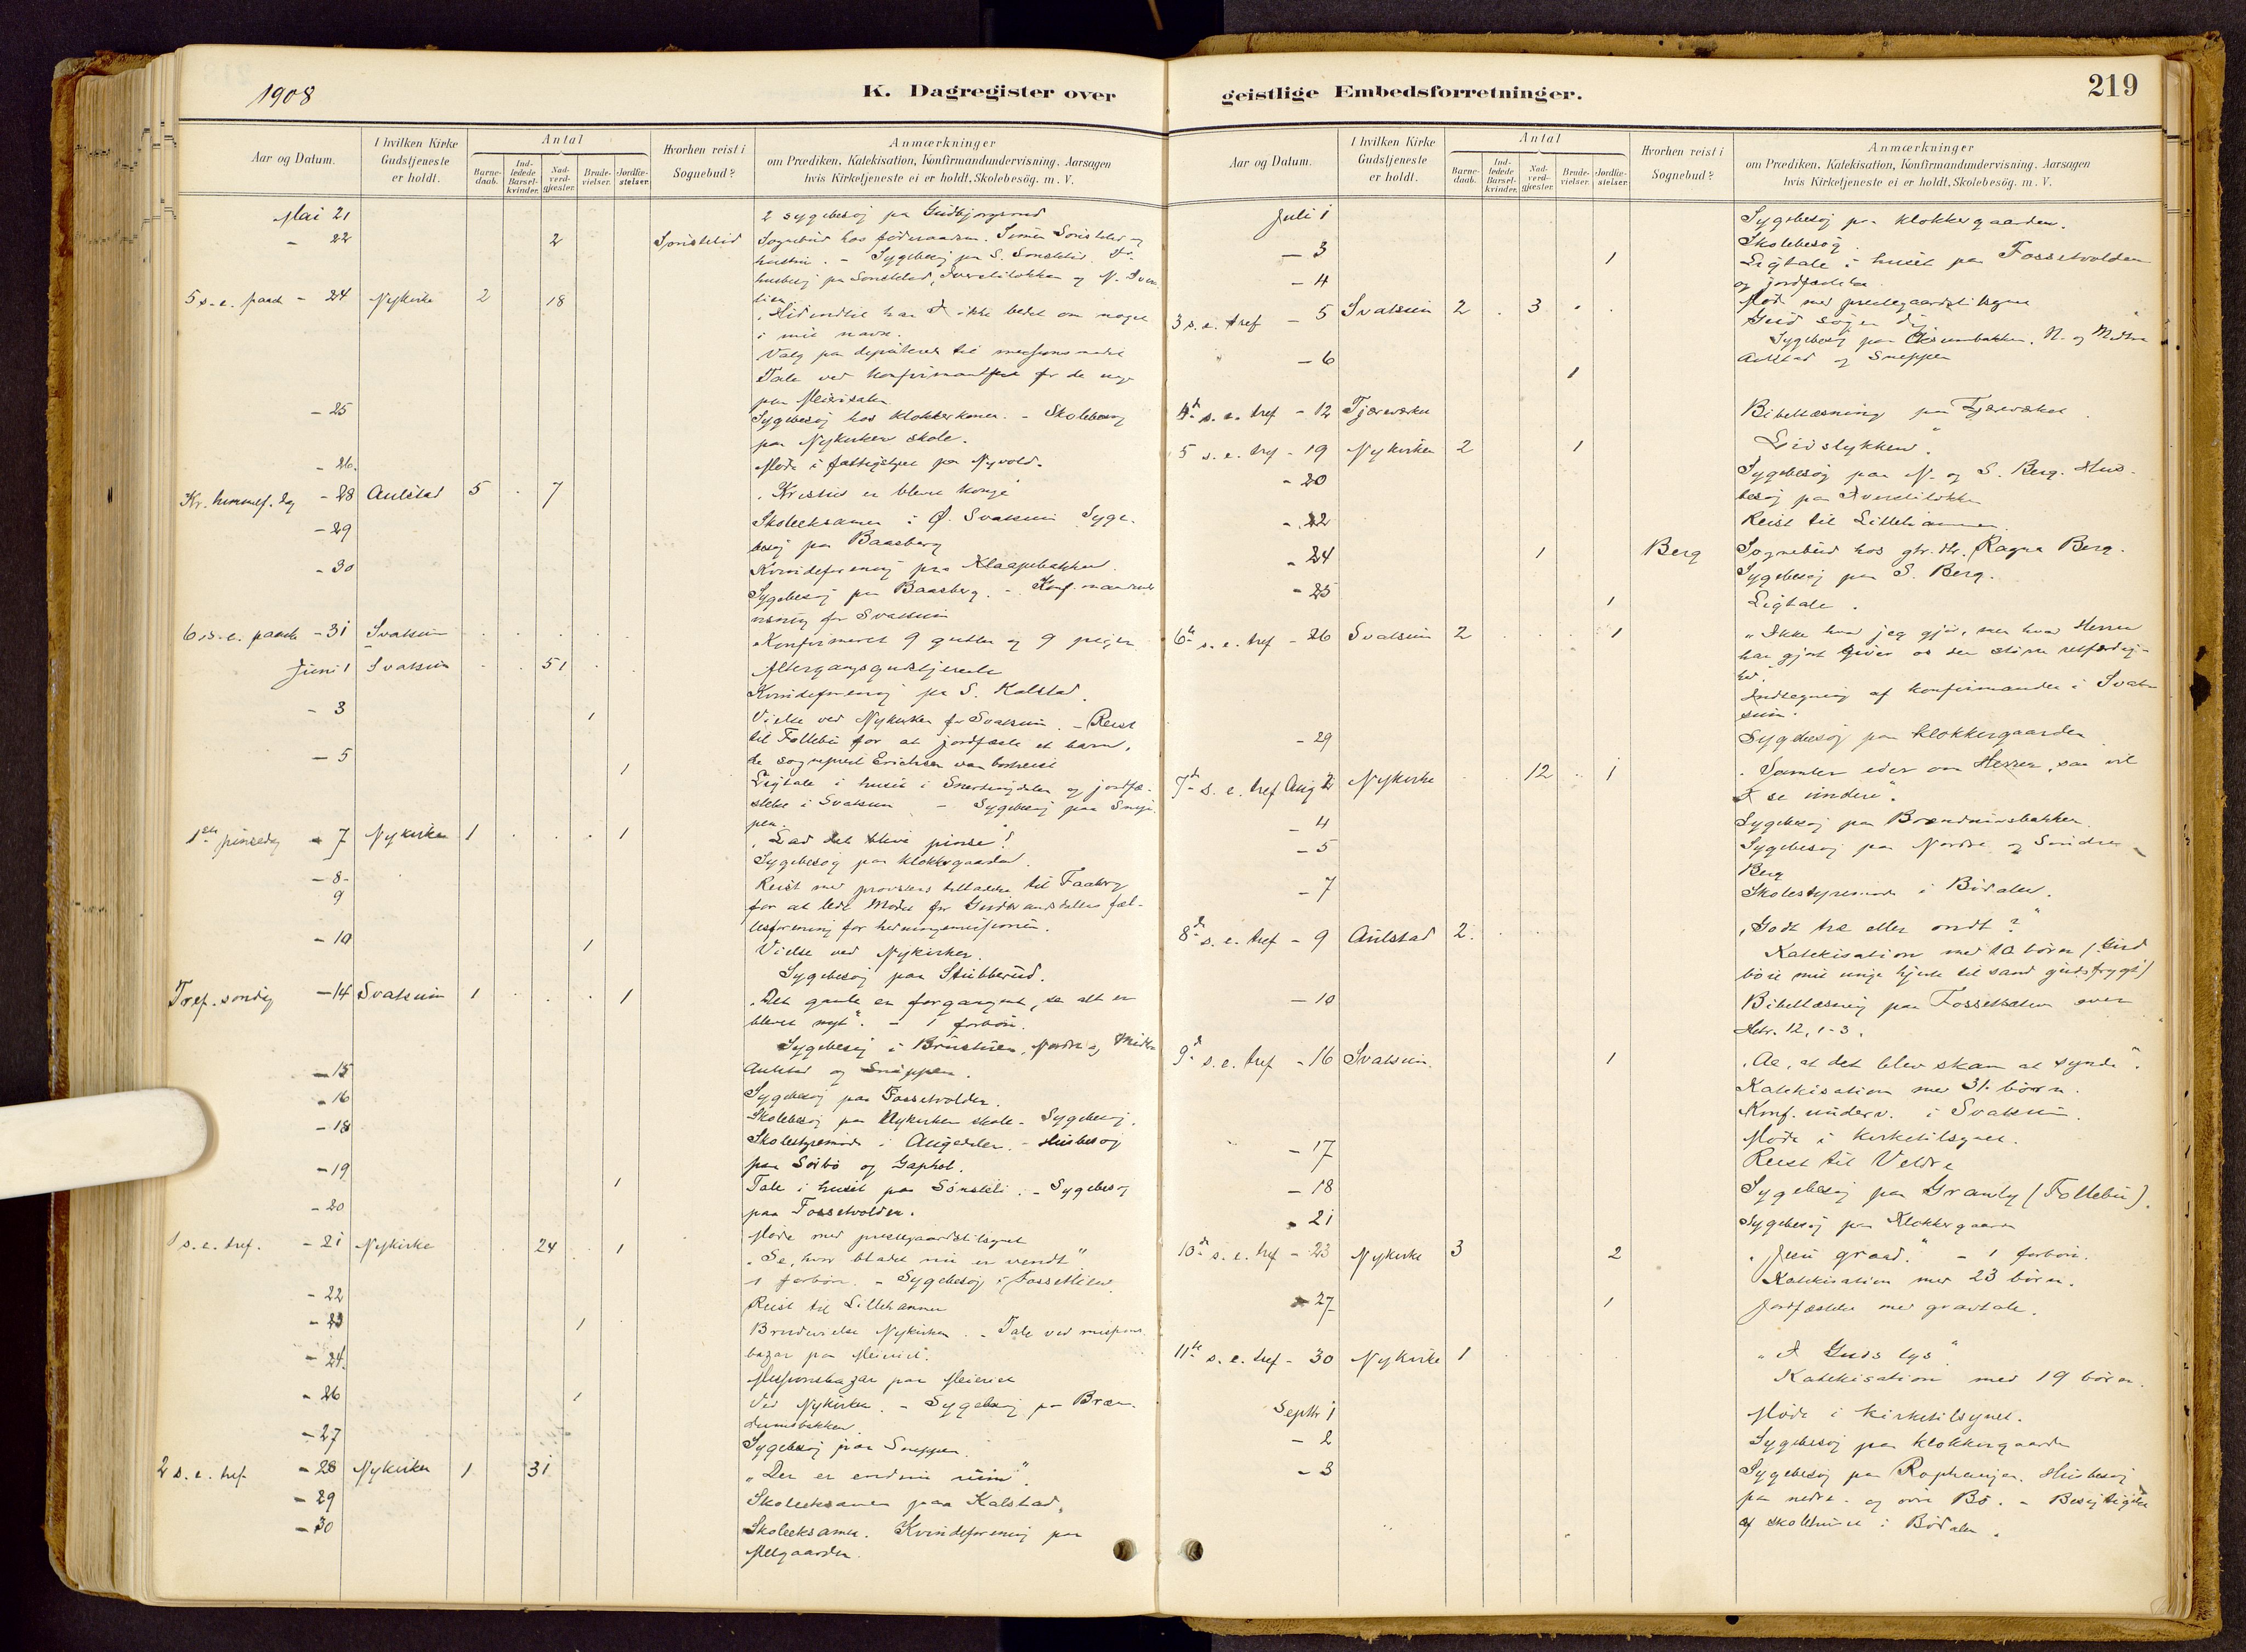 1908
K. Dagregister over
Aar og Datum.
I hvilken Kirke Gudstjeneste er holdt.
Antal
Barnedaab.
Indledede Barselkvinder.
Nadverdgjæster.
Brudevielser.
Jordfæstelser.
Hvorhen reist i Sognebud?
Anmærkninger
om Prædiken, Katekisation, Konfirmandundervisning, Aarsagen
hvis Kirketjeneste ei er holdt, Skolebesög. m. V.
Mai 21 2 sygebesøg paa Gudbjørgsrud
- 22 2 Sonstelid Sognebud hos føderaadsm. Simen Sonstelid og
hustru. - Sygebesøg paa S. Sonstelid.
husbesøg paa Sonstelid, Iversliløkken og N.
5 s. e. paaske - 24 Nykirke 2 18 "Hidindtil har I ikke bedet om noget
i mit navn.
Valg paa deputerede til
Tale ved konfirmantfest for de unge
paa Meierisalen
- 25 Sygebesøg hos klokkerkonen. - Skolebesøg
paa Nykirken skole.
- 26. Møde i fattigstyret paa Nyvold.
Kr. himmelf. dag - 28 Aulstad 5 . 7 "Kristus er bleven konge"
- 29 Skoleeksamen i Ø. Svatsum Syge-
besøg paa Baasberg
- 30 Kvindeforening paa Klaapebakken.
Sygebesøg paa Baasberg. - Konf.
for Svatsum
6 s. e. paaske - 31 Svatsum Konfirmeret 9 gutter og 9 piger
Juni 1 Svatsum 51 Altergangsgudstjeneste
Kvindeforening paa S. Kalstad.
- 3 1 Vielse ved Nykirken for Svatsum. - Reist
til Follebu for at jordfæste et barn,
da sogneprest Erichsen var bortreist
- 5 1 Ligtale i huset i og jordfæ-
stelse i Svatsum - Sygebesøg paa Snep-
pen.
1ste pinsedag - 7 Nykirken 1 . . . 1 "Lad det blive pinse"!
Sygebesøg paa klokkergaarden.
- 8 -
9 Reist med provstens tilladelse til Faaberg
for at lede Mødet for Gudbrandsdalens fæl-
lesforening for hedningemissionen.
- 10 1 Vielse ved Nykirken.
Sygebesøg paa Stubberud.
Tref. søndag - 14 Svatsum 1 . . . 1 "Det gamle er forgangent, se alt er
blevet nyt". - 1 forbøn.
Sygebesøg i Brustuen, Nordre og Midtre
- 15 Aulstad og Sneppen.
- 16 Sygebesøg paa Fossetvolden.
- 18 Skolebesøg paa Nykirken skole - Sygebesøg.
Skolestyremøde i Augedalen. - Husbesøg
paa Sørbø og Gaphol.
- 19 1 Tale i huset paa Sønsteli. - Sygebesøg
- 20 paa Fossetvolden.
Møde med prestegaardstilsynet
1 s. e. tref. - 21 Nykirke 24 . 1 "Se, hvor bladet nu er vendt"
1 forbøn. - Sygebesøg i
- 22 Reist til Lillehammer
- 23 1 Brudevielse Nykirken. - Tale ved missions-
bazar paa Meieriet.
- 24. Missionsbazar paa Meieriet
- 26 1 Ved Nykirken. - Sygebesøg paa Bræn-
- 27 Sygebesøg paa Sneppen.
2 s. e. tref - 28 Nykirken 1 31 "Der er endnu rum".
- 29 Skoleeksamen paa Kalstad.
- 30 Skoleeksamen. Kvindeforening paa
Melgaarden.
geistlige Embedsforretninger.
219
Aar og Datum.
I hvilken Kirke Gudstjeneste er holdt.
Antal
Barnedaab.
Indledede Barselkvinder.
Nadverdgjæster.
Brudevielser.
Jordfæstelser.
Hvorhen reist i Sognebud?
Anmærkninger
om Prædiken, Katekisation, Konfirmandundervisning, Aarsagen
hvis Kirketjeneste ei er holdt, Skolebesög. m. V.
Juli 1 Sygebesøg paa klokkergaarden.
Skolebesøg.
- 3 1 Ligtale i huset paa Fossetvolden
og jordfæstelse
- 4 Møde med prestegaardstilsynet
3 s. e. tref - 5 Svatsum 2 . 3 . . Gud søger dig
Sygebesøg paa N. og Midtre
- 6 1 Aulstad og Sneppen
4de s. e. tref - 12 Tjæreværket Bibellæsning paa Tjæreværket.
5 s. e. tref - 19 Nykirken 2 1 "Livslykken".
- 20 Sygebesøg paa N. og S. Berg. Hus-
besøg paa Iversliløkken
- 22 Reist til Lillehammer.
- 24 1 Berg Sognebud hos gbr. Ragna Berg.
Sygebesøg paa S. Berg.
- 25 1 Ligtale.
6te s. e. tref - 26 Svatsum 2 1 "Ikke hvad jeg gjør, men hvad Herren
har gjort giver os den større retfærdig-
hed".
Indtegning af konfirmander i Svat-
sum.
- 29 Sygebesøg paa klokkergaarden
7de s. e. tref Aug 2 Nykirke 12 . 1 "Samler eder om Herren, saa vil
I se undere".
- 4 Sygebesøg paa
- 5 Sygebesøg paa Nordre og Søndre
Berg
- 7 Skolestyremøde i Bødalen.
8de s. e. tref - 9 Aulstad 2. "Godt træ eller ondt?"
Katekisation med 10 børn (Gud
bøie mit unge hjerte til sand gudsfrygt)
- 10 Bibellæsning paa Fossetsæteren over
Hebr. 12, 1-3.
9de s. e. tref - 16 Svatsum. 1 "Aa, at det blev skam at synde".
Katekisation med 31 børn.
Konf. underv. i Svatsum.
Møde i kirketilsynet.
- 17 Reist til Veldre
- 18 Sygebesøg paa Granly (Follebu).
- 21 Sygebesøg paa Klokkergaarden
10de s. e. tref - 23 Nykirke 3 2 "Jesu graad." - 1 forbøn.
Katekisation med 23 børn.
- 27 1 Jordfæstelse med gravtale.
11te s. e. tref - 30 Nykirke 1 "I Guds lys".
Katekisation med 19 børn.
Septbr 1 Møde i kirketilsynet.
- 2 Sygebesøg paa klokkergaarden
- 3 Sygebesøg paa Husbesøg
paa nedre og øvre Bø. - Besigtigelse
af skolehuset i Bødalen.